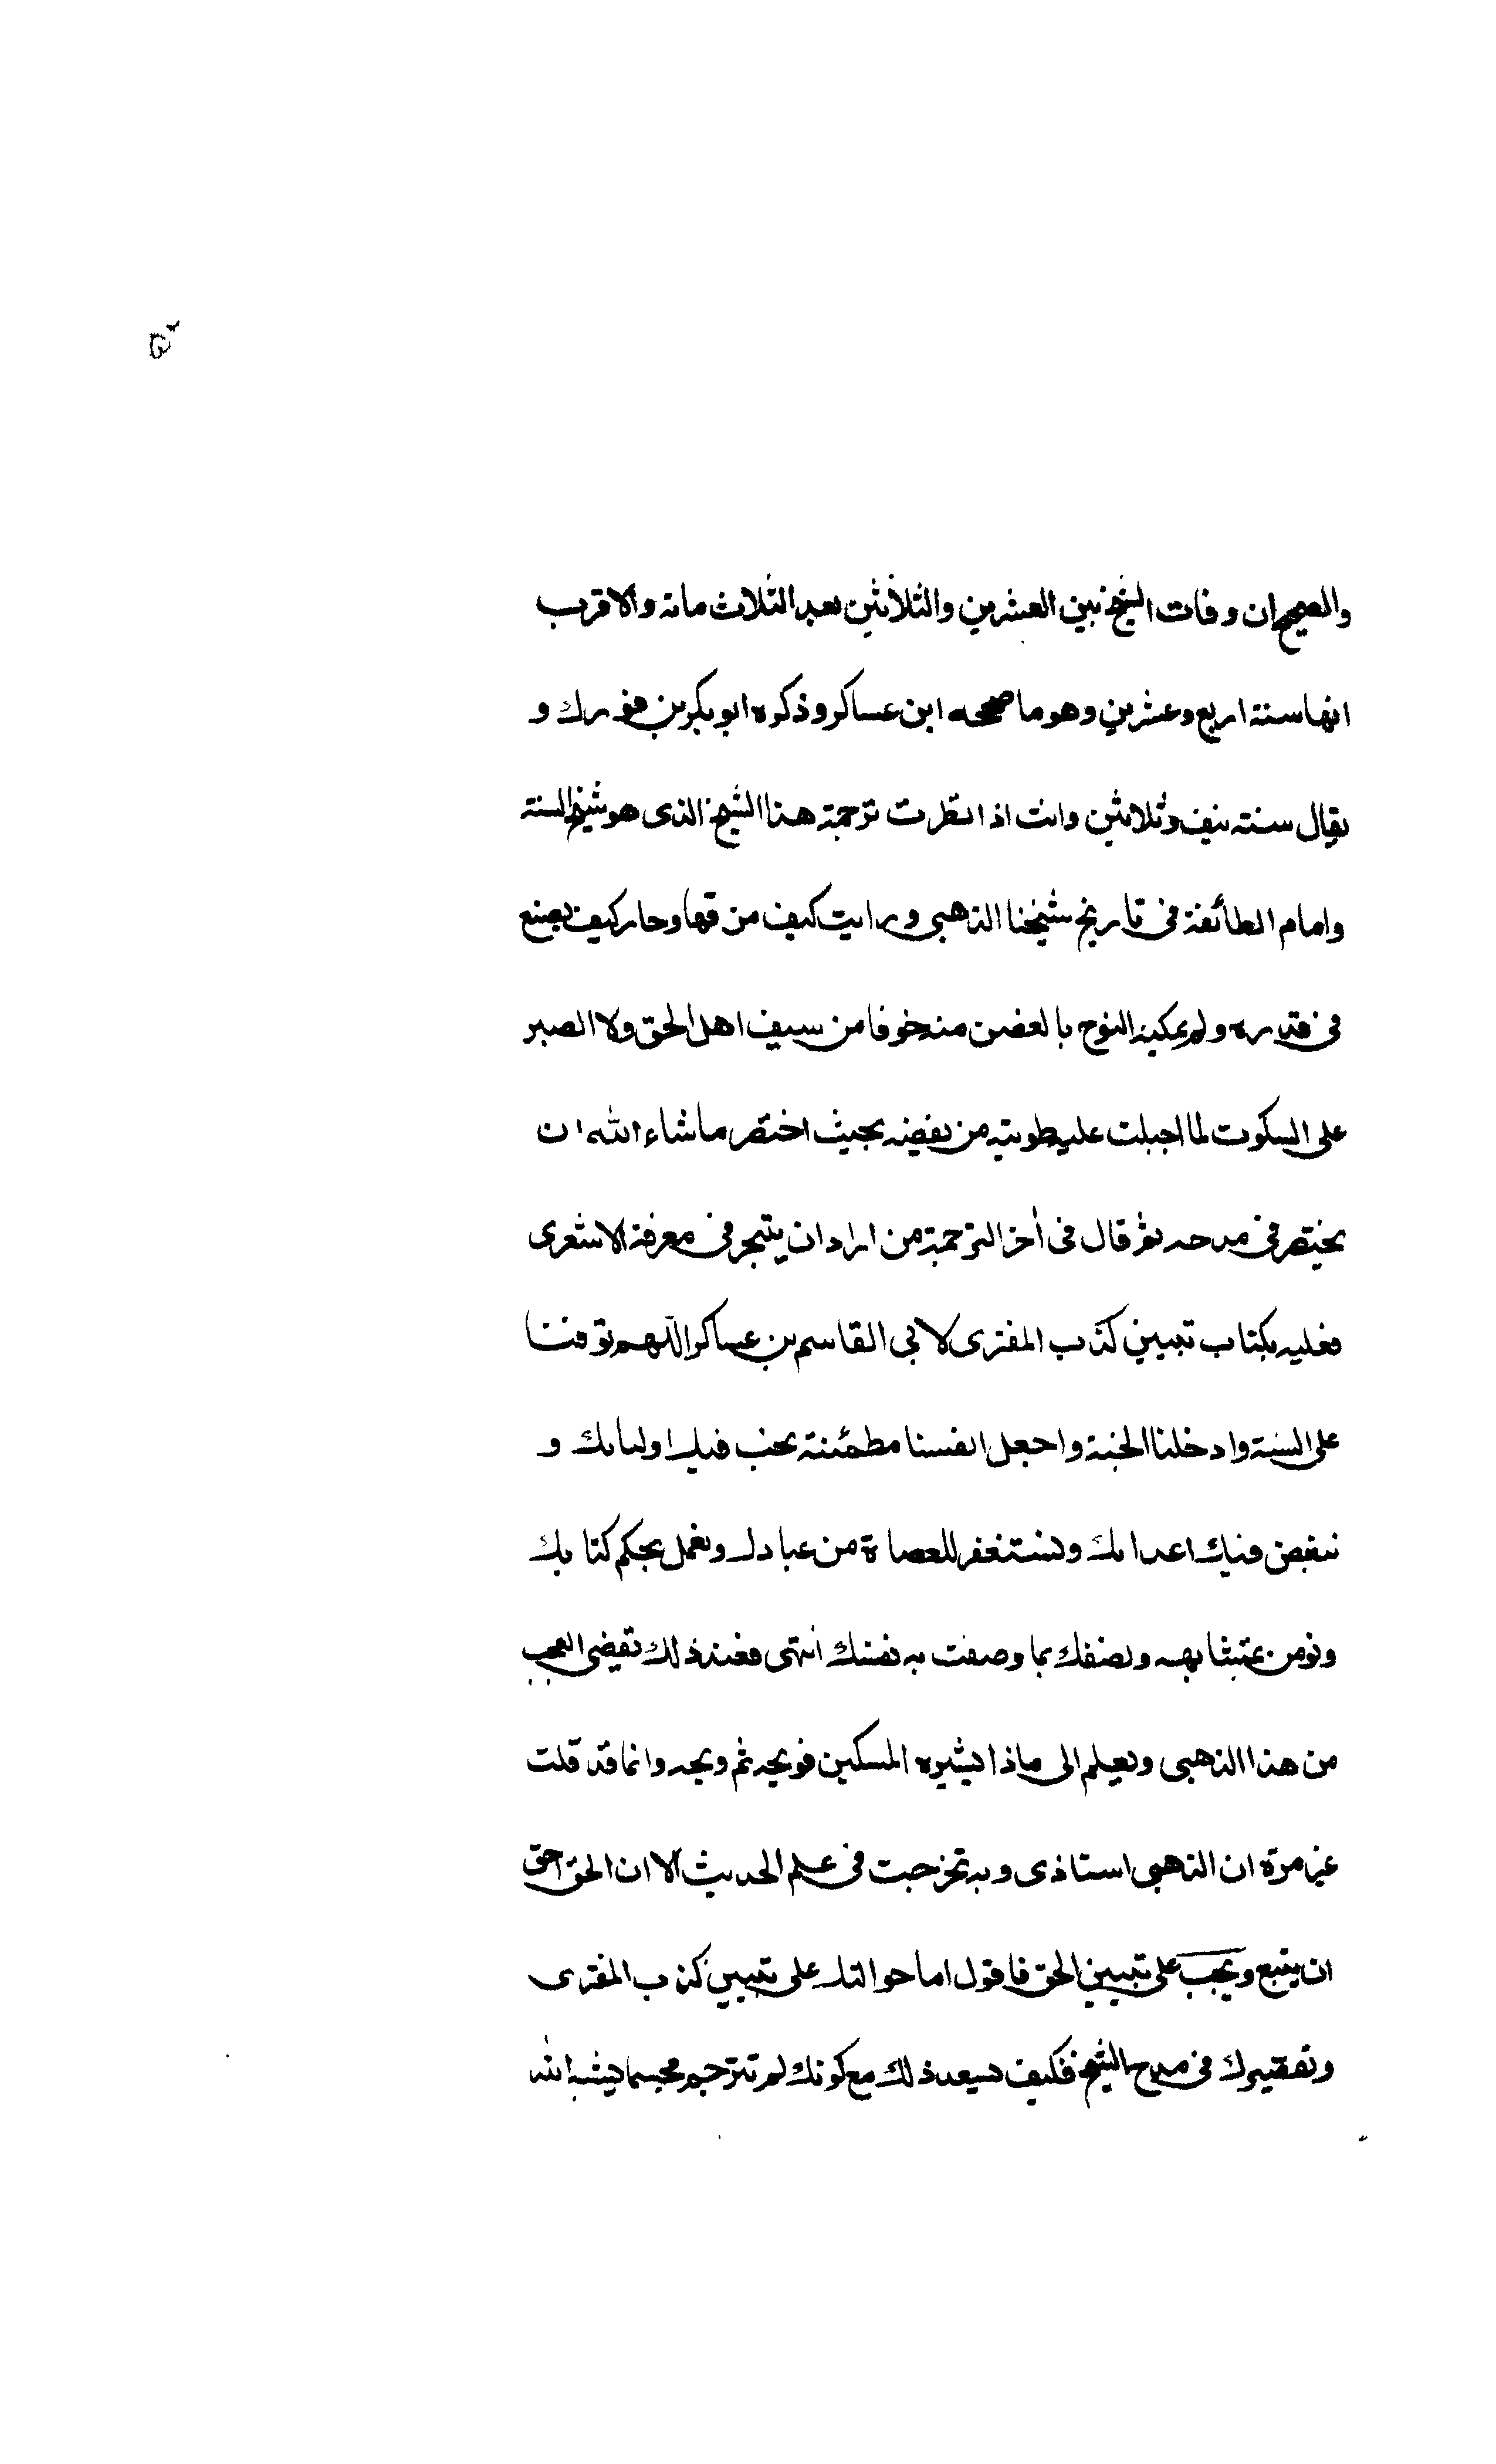 والصحيح ان وفات الشيخ بين العشرين والثلاثين بعد الثلاث مائة والاقرب
انها سنة اربع وعشرين وهو ما صححه ابن عساكر وذكره ابو بكر بن فورك و
يقال سنة نيف وثلاثين وانت اذا نظرت ترجمة هذا الشيخ الذى هو شيخ السنة
وامام الطائفة فى تاريخ شيخنا الذهبى ورايت كيف من قها وحار كيف يصنع
فى قدره ولم يمكنه البوح بالغض منه خوفا من سيف اهل الحق ولا الصبر
على السكوت لما اجبلت عليه طويته من بغضه بحيث اختصر ما شاء الله ان
يختصر فى مدحه ثم قال فى أخر الترجمة من اراد ان يتبحر فى معرفة الاشعرى
فعليه بكتاب تبيين كذب المفترى لابى القاسم بن عساكر اللهم توفنا
على السنة وادخلنا الجنة واجعل انفسنا مطمئنة نحب فيك اوليائك و
نبغض فيك اعدائك ونستغفر للعصاة من عبادك ونعمل بحكم كتابك
ونومن بمتشابهه ونصفك بما وصفت به نفسك انتهى فعند ذلك تقضى العجب
من هذا الذهبى وتعلم الى ماذا يشيره المسكين فويحه ثم ويحه وانا قد قلت
غير مرة ان الذهبى استاذى وبه تخرجت فى علم الحديث الا ان الحق احق
ان يتبع ويجب على تبيين الحق فاقول اما حوالتك على تبيين كذب المفترى
وتقصيرك فى مدح الشيخ فكيف يسعد ذلك مع كونك لم تترجم مجسما يشبه الله